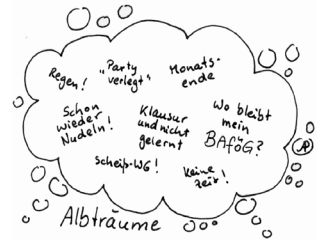 Regen!
"Party
verlegt"
Monats-
ende
Schon
wieder
Nudeln!
Klausur
und nicht
gelernt
Wo bleibt
mein
BAföG?
Scheiß-WG!
Keine
Zeit!
Albträume